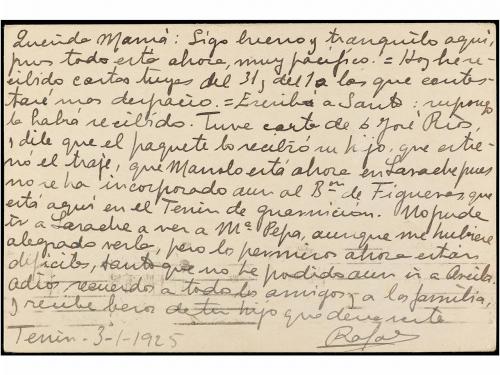 Querida Mamá: Sigo bueno y tranquilo aquí,
pues todo está ahora, muy pacífico. = Hoy he re-
cibido cartas tuyas del 31 y del 1 a las que contes-
taré mas despacio. = Escribo a Santo : supongo
la habrá recibido. Tuve carta de José Ríos,
y dile que el paquete lo recibió su hijo, que estre-
nó el traje, que Manolo está ahora en Larache pues
no se ha incorporado aun al Bon de Figueras que
está aquí en el Tenin de guarnición. No pude
ir a Larache a ver a Mª Pepa, aunque me hubiere
alegrado verla, pero los permisos ahora están
difíciles, tanto que no he podido aun ir a Arcila.
adios recuerdos a todos los amigos y a la familia,
y recibe besos de tu hijo que de verte
Tenin - 3-1-1925 Rafael